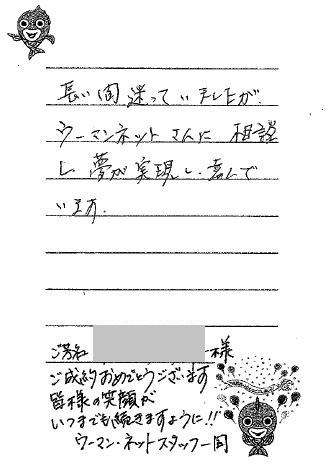 長い間迷っていましたが、
ウーマンネットさんに相談
し夢が実現し、喜んで
います。
ご芳名 様
ご成約おめでとうございます
皆様の笑顔が
いつまでも続きますように!!
ウーマン・ネットスタッフ一同